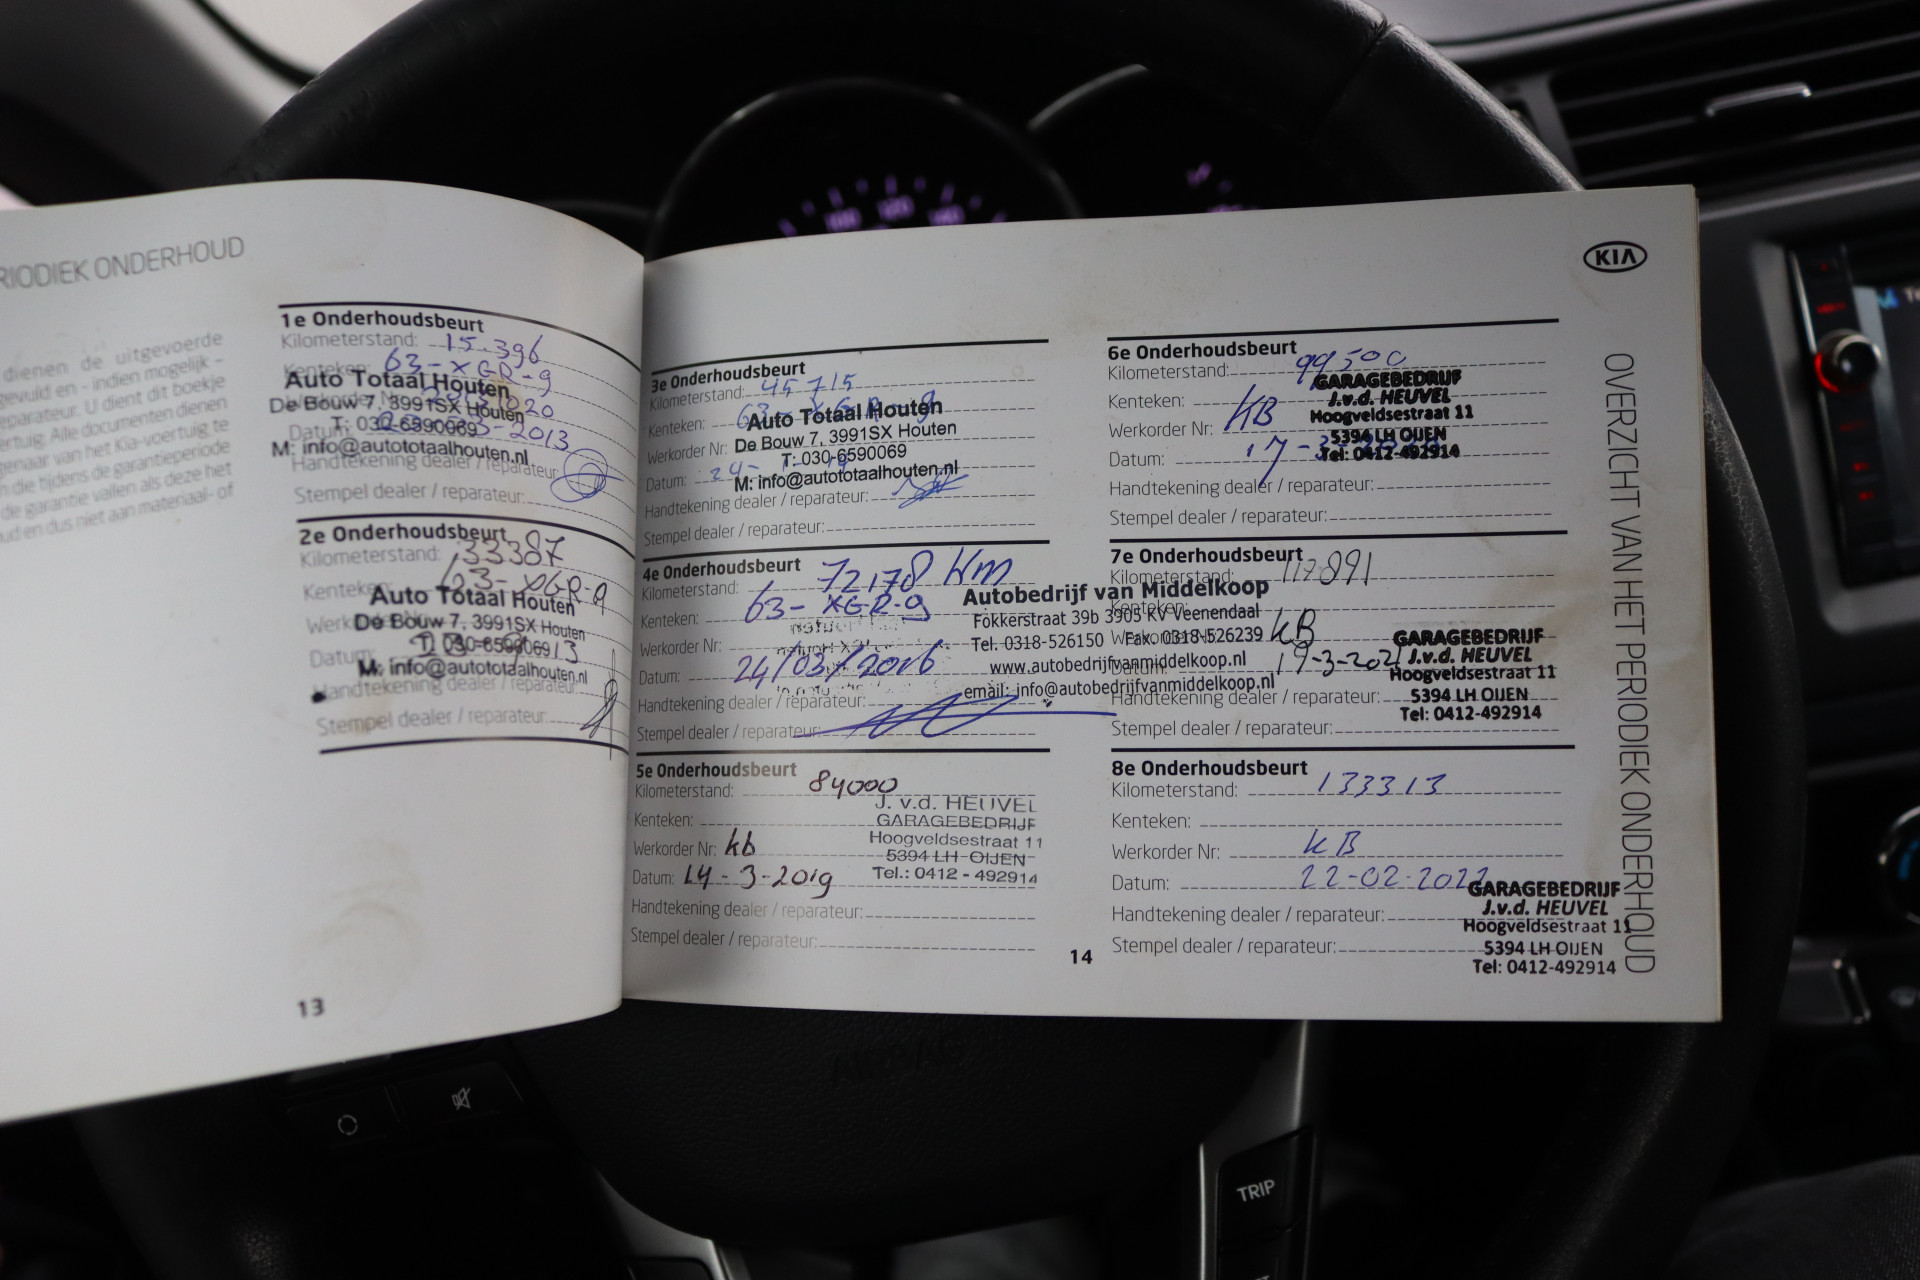 RIODIEK ONDERHOUD
dienen de uitgevoerde
gevuld en - indien mogelijk -
eparateur. U dient dit boekje
ertuig. Alle documenten dienen
genaar van het Kia-voertuig te
n die tijdens de garantieperiode
de garantie vallen als deze het
ud en dus niet aan materiaal- of
1e Onderhoudsbeurt
Kilometerstand: 15.396
Kenteken: 63-XGR-9
Auto Totaal Houten
De Bouw 7, 3991SX Houten
T: 030-6590069
Datum: 3-2013
M: info@autototaalhouten.nl
Handtekening dealer / reparateur:
Stempel dealer / reparateur:
2e Onderhoudsbeurt
Kilometerstand: 33387
Kenteken: 63-XGR-9
Auto Totaal Houten
De Bouw 7, 3991SX Houten
Datum: 13
M: info@autototaalhouten.nl
Handtekening dealer / reparateur:
Stempel dealer / reparateur:
13
3e Onderhoudsbeurt
Kilometerstand: 45715
Kenteken: 63-XGR-9
Auto Totaal Houten
Werkorder Nr: De Bouw 7, 3991SX Houten
T: 030-6590069
Datum: 24-
M: info@autototaalhouten.nl
Handtekening dealer / reparateur:
Stempel dealer / reparateur:
4e Onderhoudsbeurt
Kilometerstand: 72178 km
Kenteken: 63-XGR-9
Werkorder Nr:
Datum: 24/03/2016
Handtekening dealer / reparateur:
Stempel dealer / reparateur:
Autobedrijf van Middelkoop
Fokkerstraat 39b 3905 KV Veenendaal
Tel. 0318-526150 Fax. 0318-526239
www.autobedrijfvanmiddelkoop.nl
email: info@autobedrijfvanmiddelkoop.nl
5e Onderhoudsbeurt
Kilometerstand: 84000
Kenteken:
Werkorder Nr: kb
Datum: 14-3-2019
Handtekening dealer / reparateur:
Stempel dealer / reparateur:
J. v.d. HEUVEL
GARAGEBEDRIJF
Hoogveldsestraat 11
5394 LH OIJEN
Tel.: 0412 - 492914
14
KIA
6e Onderhoudsbeurt
Kilometerstand: 99500
Kenteken:
Werkorder Nr: KB
Datum: 17-3-
Handtekening dealer / reparateur:
Stempel dealer / reparateur:
GARAGEBEDRIJF
J.v.d. HEUVEL
Hoogveldsestraat 11
5394 LH OIJEN
Tel: 0412-492914
7e Onderhoudsbeurt
Kilometerstand: 117891
Kenteken:
Werkorder Nr: KB
Datum: 19-3-2021
Handtekening dealer / reparateur:
Stempel dealer / reparateur:
GARAGEBEDRIJF
J.v.d. HEUVEL
Hoogveldsestraat 11
5394 LH OIJEN
Tel: 0412-492914
8e Onderhoudsbeurt
Kilometerstand: 133313
Kenteken:
Werkorder Nr: KB
Datum: 22-02-2022
Handtekening dealer / reparateur:
Stempel dealer / reparateur:
GARAGEBEDRIJF
J.v.d. HEUVEL
Hoogveldsestraat 11
5394 LH OIJEN
Tel: 0412-492914
OVERZICHT VAN HET PERIODIEK ONDERHOUD
100 120 140
AIRBAG
TRIP